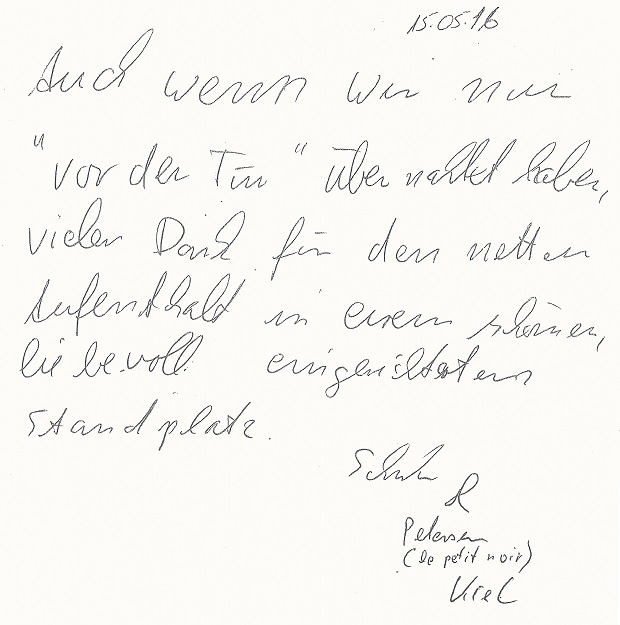 15.05.16
Auch wenn wir nur
"vor der Tür" übernachtet haben,
vielen Dank für den netten
Aufenthalt in einem schönen,
liebevoll eingerichteten
Standplatz.
Petersen
(le petit noir)
Kiel